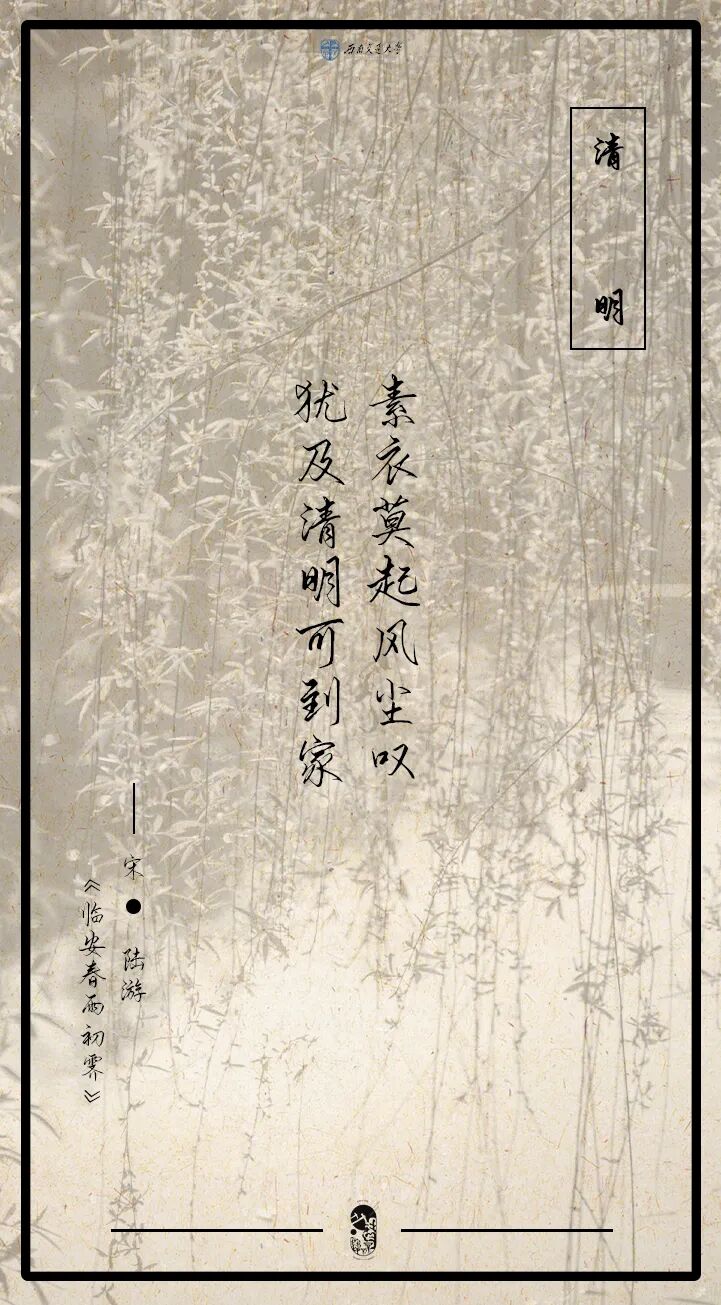 西南交通大学
清明
素衣莫起风尘叹
犹及清明可到家
——宋●陆游
《临安春雨初霁》